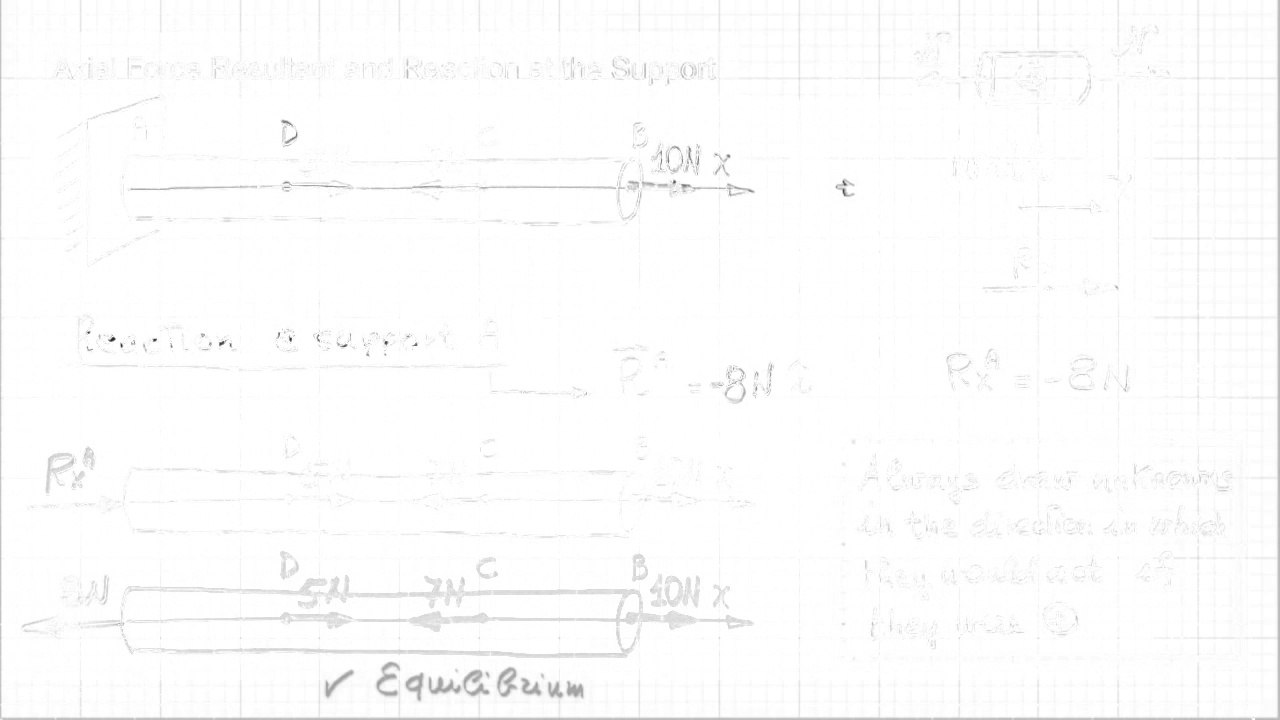 Axial Force Resultant and Reaction at the Support
A
D C B
10N x
Reaction @ support A
= -8N
RxA = -8N
RxA
D C B
10N x
Always draw unknowns
in the direction in which
they would act if
they were +
8N
D C B
5N 7N 10N x
✓ Equilibrium